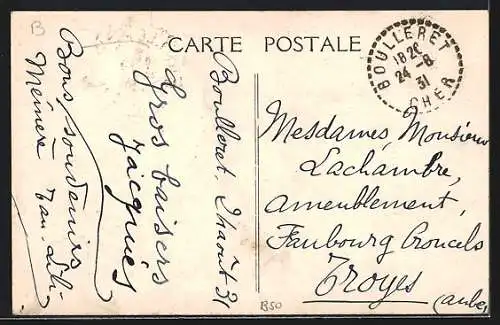 B
CARTE POSTALE
BOULLERET
18 20
24 - 8
31
CHER
Boulleret, août 31
Gros baisers
Jacques
Bons souvenirs
Mémère
Mesdames, Monsieur
Lachambre,
ameublement,
Faubourg Croncels
Troyes
(aube)
B50